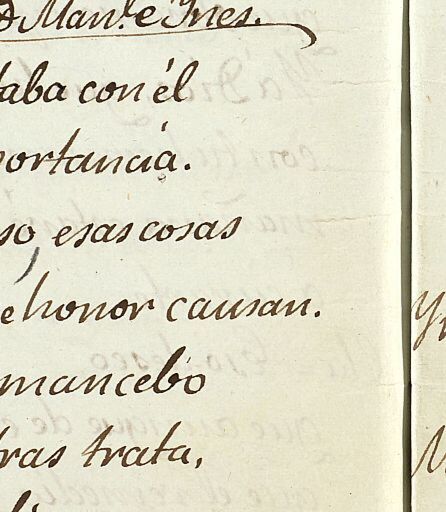 D. Man.l e Ynes.
taba con él
portancia.
so, esas cosas
e honor causan.
mancebo
tras trata,